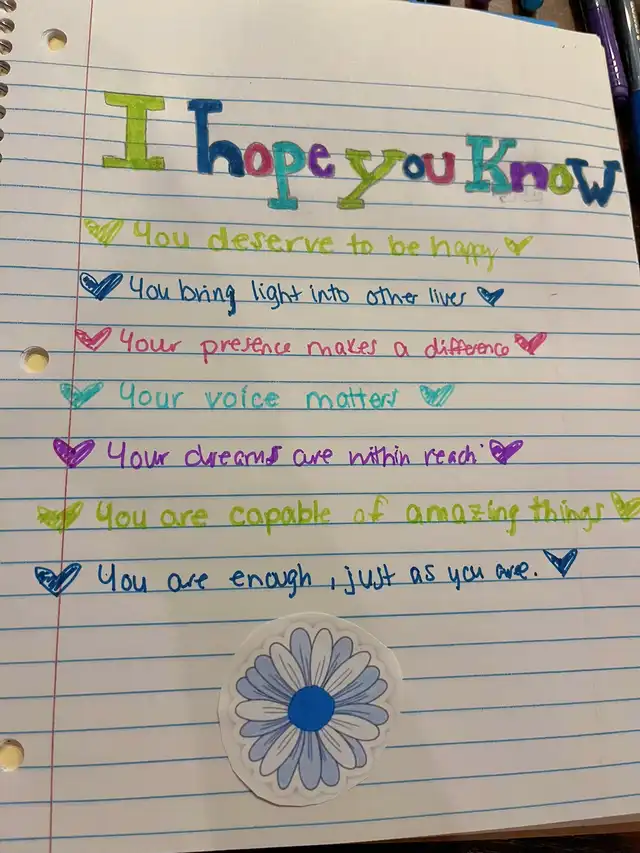 I hope you Know
You deserve to be happy
You bring light into other lives
Your presence makes a difference
Your voice matters
Your dreams are within reach
You are capable of amazing things
You are enough, just as you are.